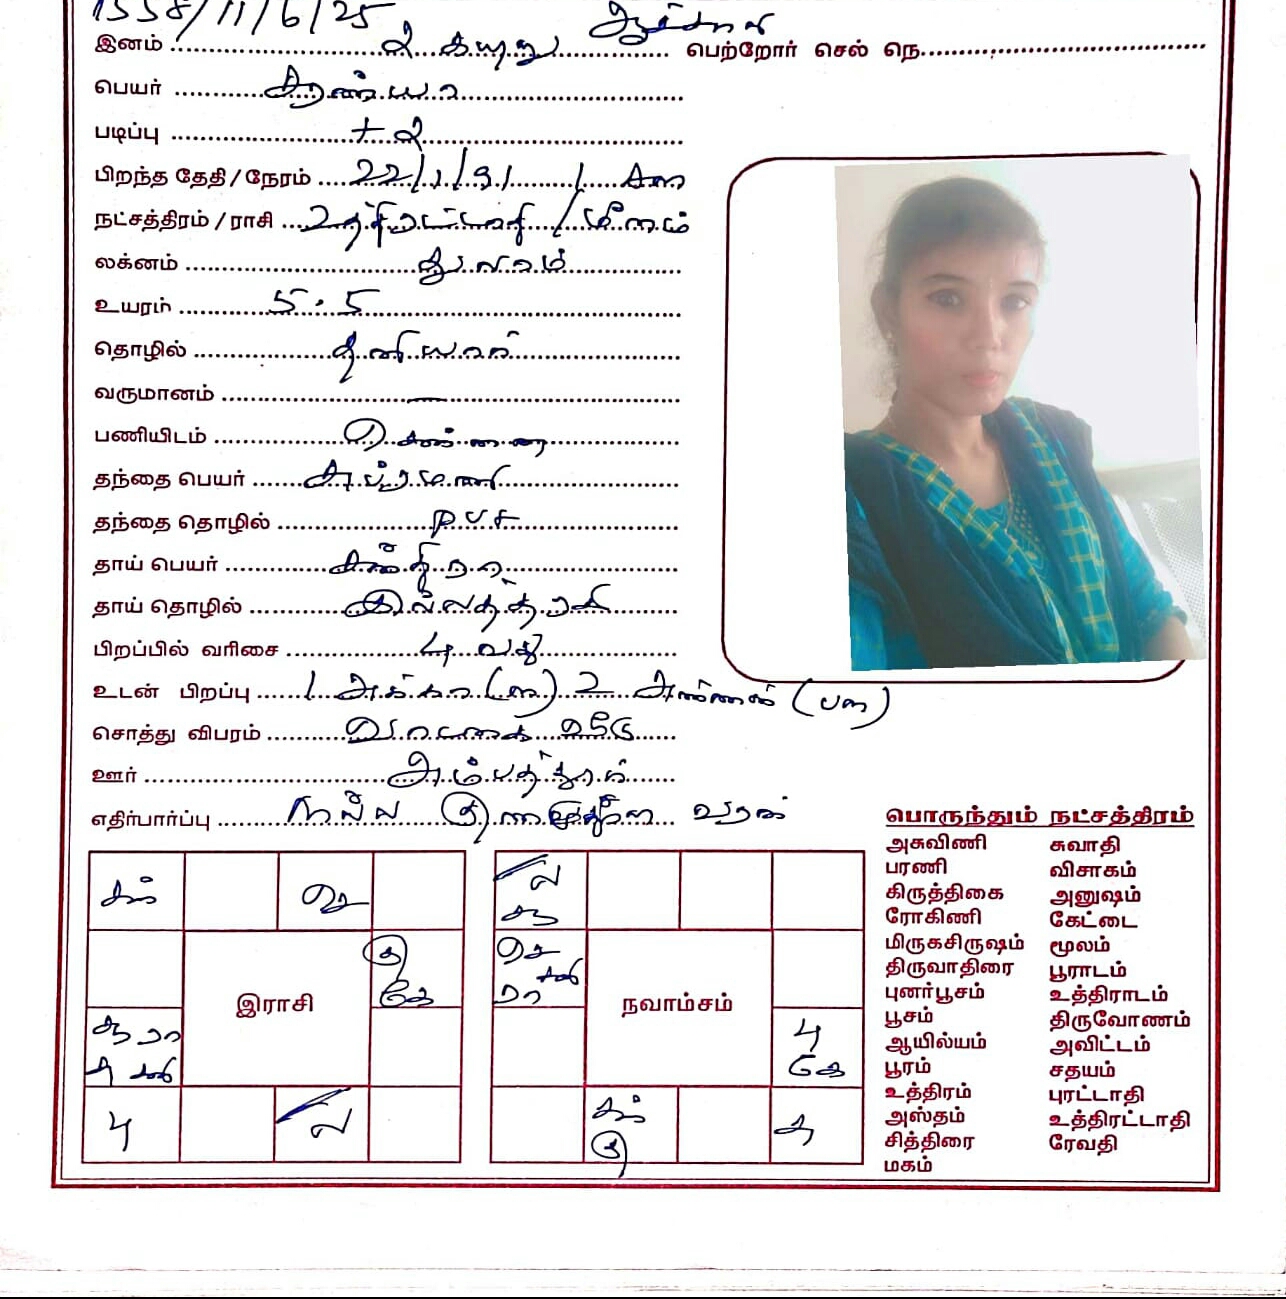 1558/11/6/25
இனம் பெற்றோர் செல் நெ.
பெயர் சரண்யா
படிப்பு +2
பிறந்த தேதி / நேரம் 22/1/91 / 1 AM
நட்சத்திரம் / ராசி உத்திரட்டாதி / மீனம்
லக்னம் துலாம்
உயரம் 5.5
தொழில் தனியார்
வருமானம் —
பணியிடம் சென்னை
தந்தை பெயர் சுப்ரமணி
தந்தை தொழில்
தாய் பெயர் சந்திரா
தாய் தொழில் இல்லத்தரசி
பிறப்பில் வரிசை 4 வது
உடன் பிறப்பு 1 அக்கா 2 அண்ணன்
சொத்து விபரம் வாடகை வீடு
ஊர் அம்பத்தூர்
எதிர்பார்ப்பு நல்ல வரன்
சந் செ
கு
கே
சூ ரா
சு சனி
பு ல
இராசி
ல
சூ
செ
சனி
ரா
பு
கே
சந்
கு
சு
நவாம்சம்
பொருந்தும் நட்சத்திரம்
அசுவிணி சுவாதி
பரணி விசாகம்
கிருத்திகை அனுஷம்
ரோகிணி கேட்டை
மிருகசிருஷம் மூலம்
திருவாதிரை பூராடம்
புனர்பூசம் உத்திராடம்
பூசம் திருவோணம்
ஆயில்யம் அவிட்டம்
பூரம் சதயம்
உத்திரம் புரட்டாதி
அஸ்தம் உத்திரட்டாதி
சித்திரை ரேவதி
மகம்